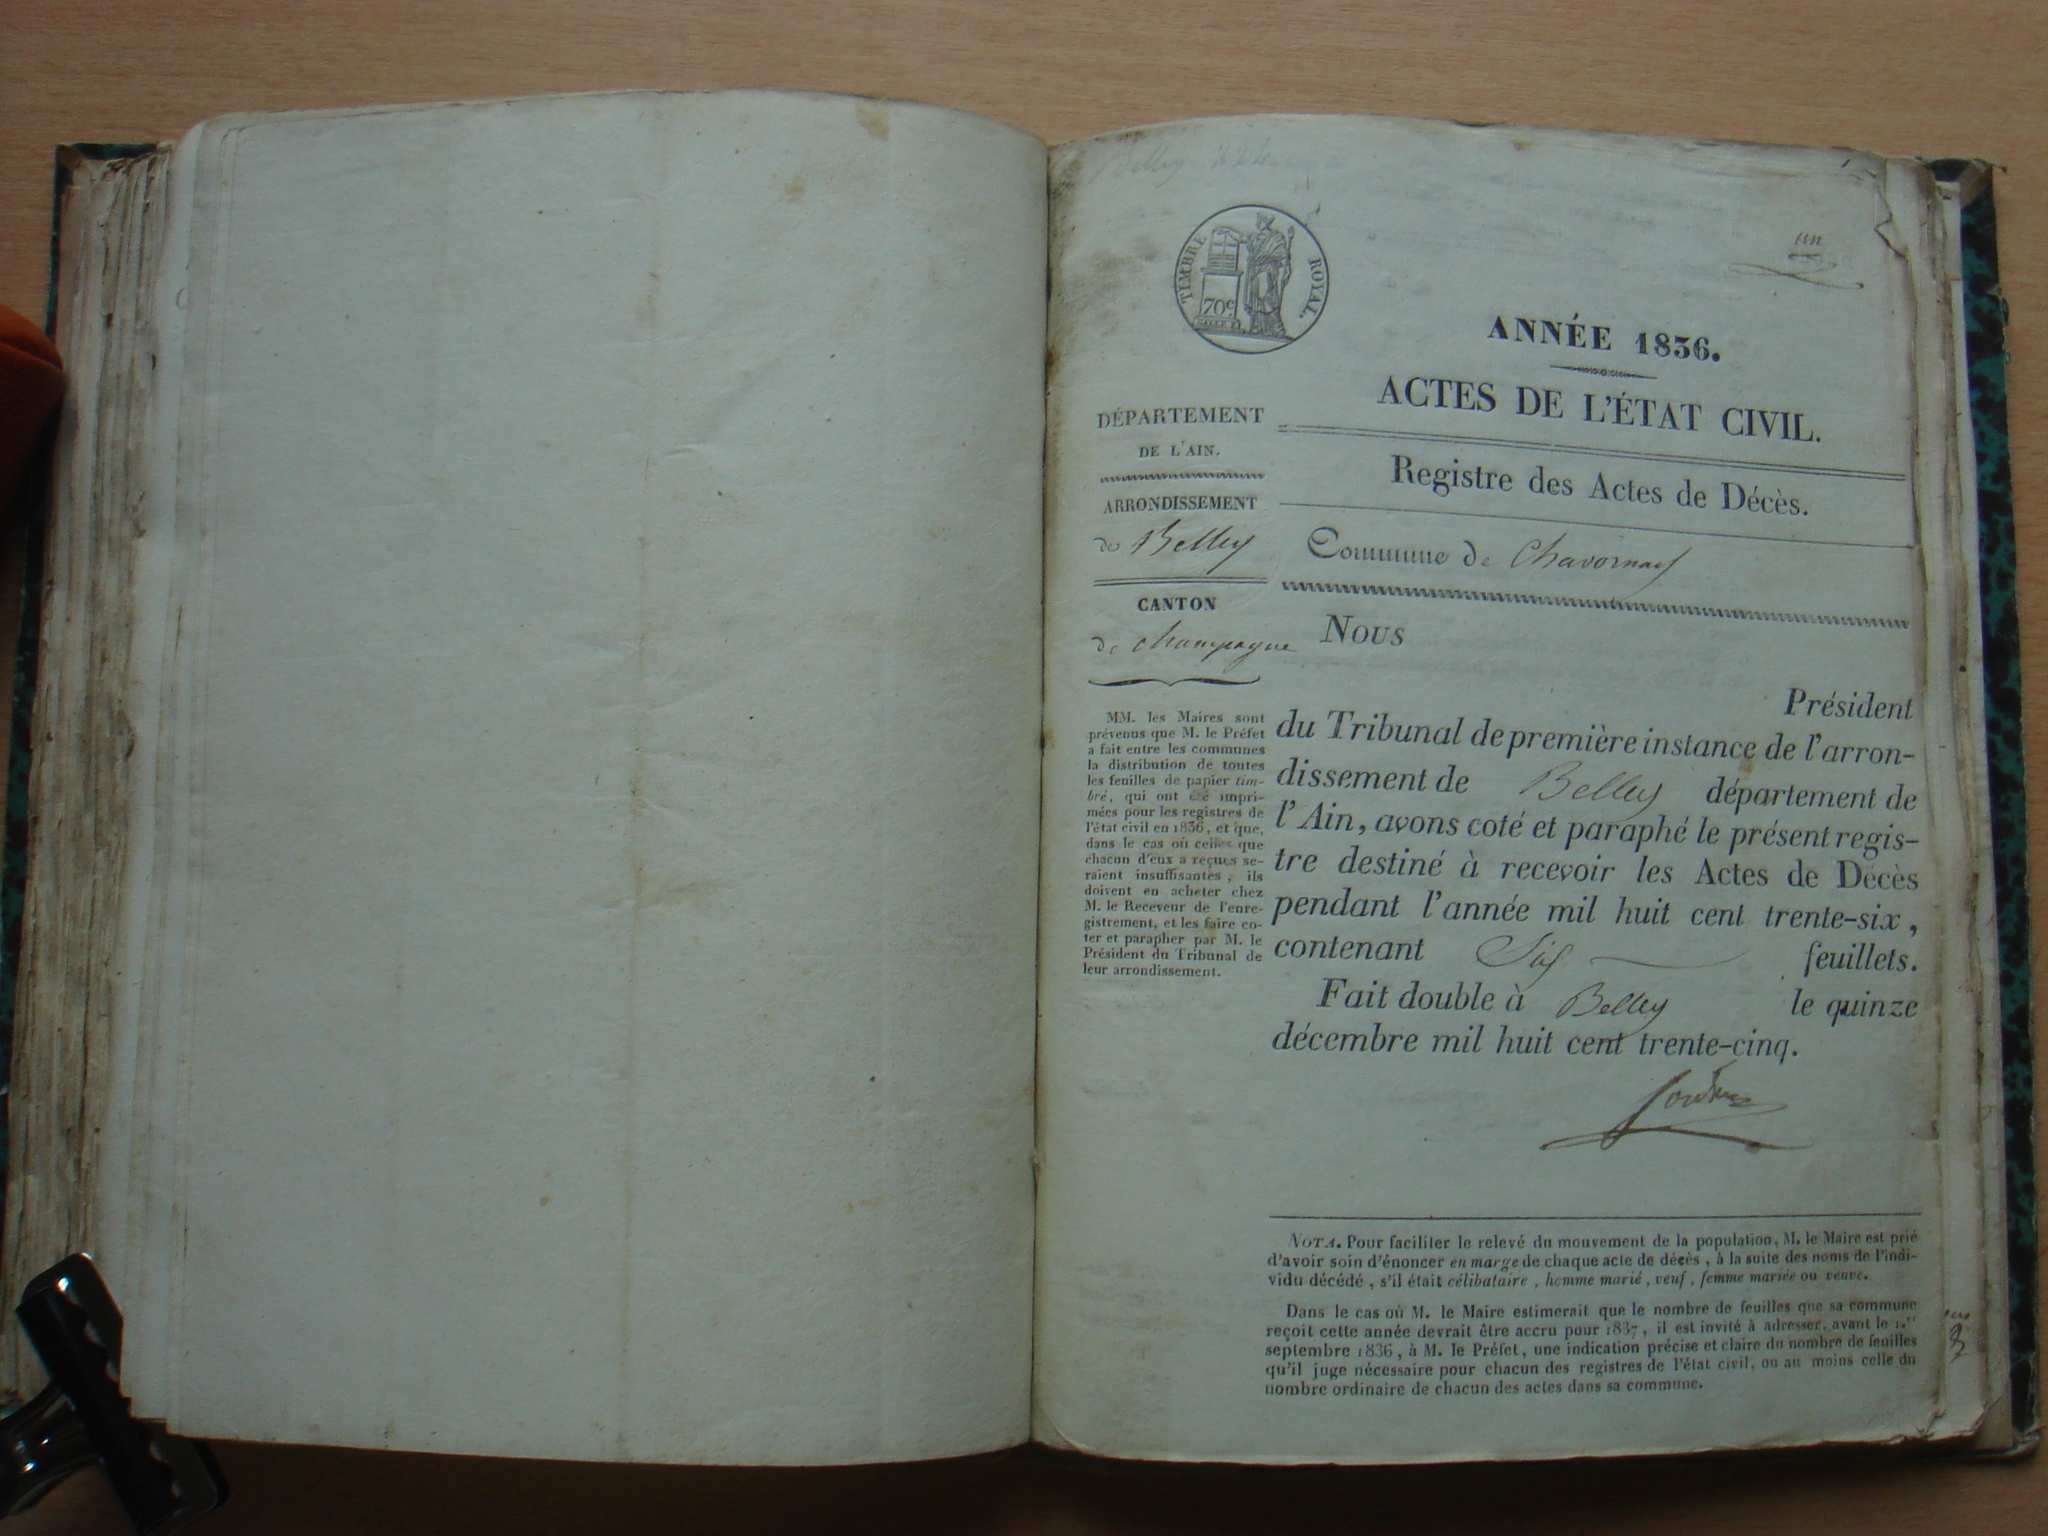 un
TIMBRE ROYAL.
70c
ANNÉE 1836.
ACTES DE L'ÉTAT CIVIL.
Registre des Actes de Décès.
Commune de Chavornay
DÉPARTEMENT
DE L'AIN.
ARRONDISSEMENT
de Belley
CANTON
de Champagne
MM. les Maires sont
prévenus que M. le Préfet
a fait entre les communes
la distribution de toutes
les feuilles de papier tim-
bré, qui ont été impri-
mées pour les registres de
l'état civil en 1836, et que,
dans le cas où celles que
chacun d'eux a reçues se-
raient insuffisantes, ils
doivent en acheter chez
M. le Receveur de l'enre-
gistrement, et les faire co-
ter et parapher par M. le
Président du Tribunal de
leur arrondissement.
NOUS
Président
du Tribunal de première instance de l'arron-
dissement de Belley département de
l'Ain, avons coté et paraphé le présent regis-
tre destiné à recevoir les Actes de Décès
pendant l'année mil huit cent trente-six,
contenant Six feuillets.
Fait double à Belley le quinze
décembre mil huit cent trente-cinq.
NOTA. Pour faciliter le relevé du mouvement de la population, M. le Maire est prié
d'avoir soin d'énoncer en marge de chaque acte de décès, à la suite des noms de l'indi-
vidu décédé, s'il était célibataire, homme marié, veuf, femme mariée ou veuve.
Dans le cas où M. le Maire estimerait que le nombre de feuilles que sa commune
reçoit cette année devrait être accru pour 1837, il est invité à adresser, avant le 1.er
septembre 1836, à M. le Préfet, une indication précise et claire du nombre de feuilles
qu'il juge nécessaire pour chacun des registres de l'état civil, ou au moins celle du
nombre ordinaire de chacun des actes dans sa commune.